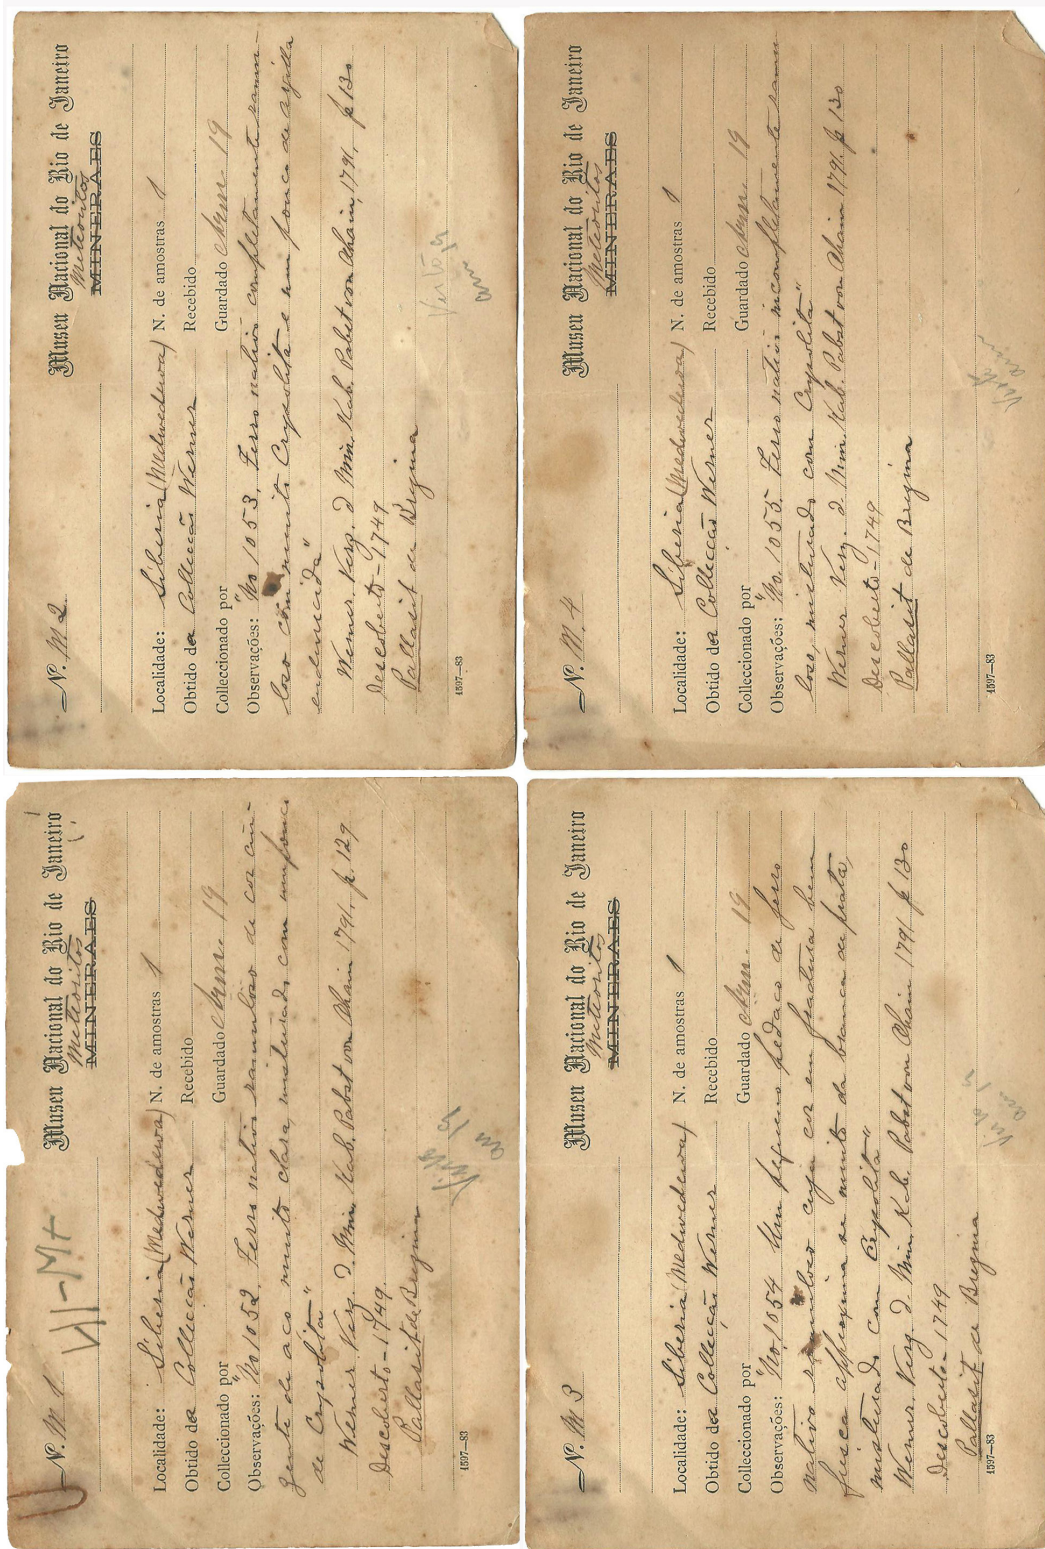 Nº. M 1
VII-Mt
Museu Nacional do Rio de Janeiro
Meteoritos
MINERAES
Localidade: Siberia (Medwedewa) N. de amostras 1
Obtido da Collecção Werner Recebido
Colleccionado por Guardado Arm. 19
Observações: "No 1052. Ferro nativo ramuloso de cor cin-
zento de aço muito clara misturado com um pouco
de Crysolita"
Werner Verz. d. Min. Kab. Pabst von Ohain 1791, p 129
Descoberto - 1749.
Pallasit de Brezina
1597—83
Nº. M 2
Museu Nacional do Rio de Janeiro
Meteoritos
MINERAES
Localidade: Siberia (Medwedewa) N. de amostras 1
Obtido da Collecção Werner Recebido
Colleccionado por Guardado Arm. 19
Observações: "No 1053. Ferro nativo completamente ramu-
loso com muito Crysolita e um pouco de argilla
endurecida"
Werner. Verz. d Min. Kab. Pabst von Ohain, 1791, p 130
Descoberto - 1749
Pallasit de Brezina
1597—83
Nº. M 3
Museu Nacional do Rio de Janeiro
Meteoritos
MINERAES
Localidade: Siberia (Medwedewa) N. de amostras 1
Obtido da Collecção Werner Recebido
Colleccionado por Guardado Arm. 19
Observações: "No. 1054 Um pequeno pedaço de ferro
nativo ramuloso cuja cor em fractura bem
fresca approxima se muito da branca de prata,
misturado com Crysolita"
Werner Verz. d. Min. Kab. Pabst von Ohain 1791 p 130
Descoberto - 1749
Pallasit de Brezina
1597—83
Nº. M. 4
Museu Nacional do Rio de Janeiro
Meteoritos
MINERAES
Localidade: Siberia (Medwedewa) N. de amostras 1
Obtido da Collecção Werner Recebido
Colleccionado por Guardado Arm. 19
Observações: "No. 1055. Ferro nativo incompletamente ramu
loso, misturado com Crysolita"
Werner Verz. d. Min. Kab. Pabst von Ohain 1791. p 130
Descoberto - 1749
Pallasit de Brezina
1597—83